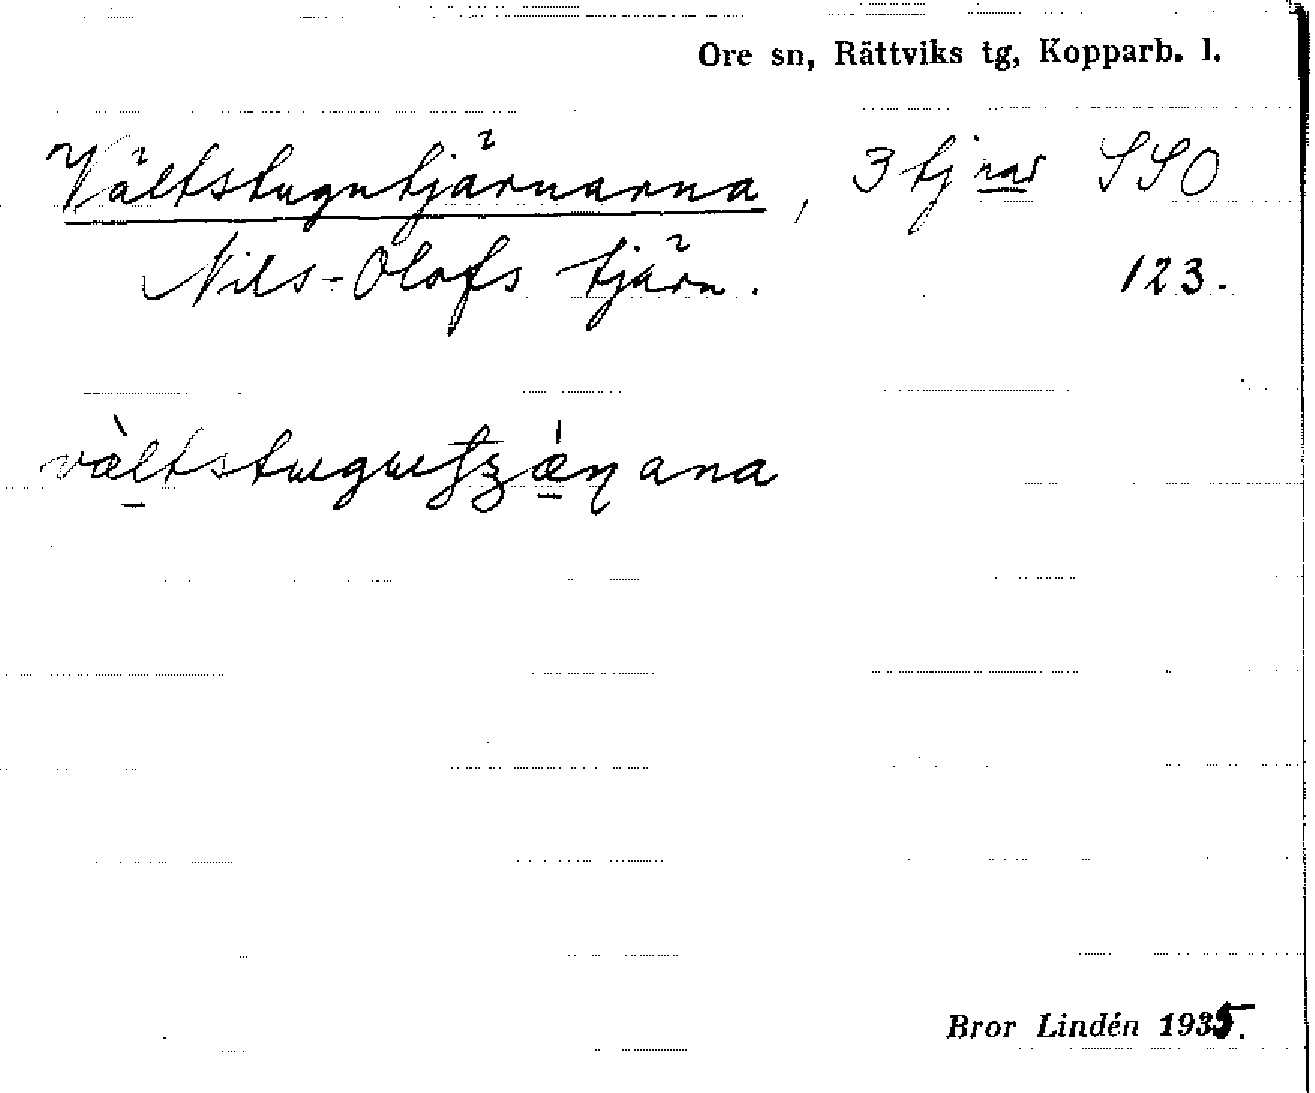 Ore sn, Rättviks tg, Kopparb. l.
Vältstugutjärnarna, 3 tjnar SSO
Nils-Olofs tjärn. 123.
Bror Lindén 1935.